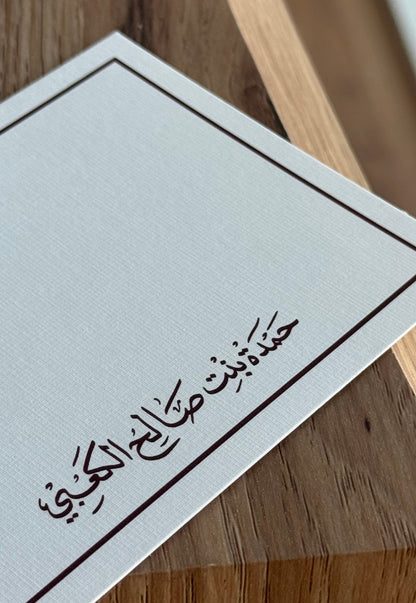 حَمْدَة بِنْت صَالِح الكَعْبِي